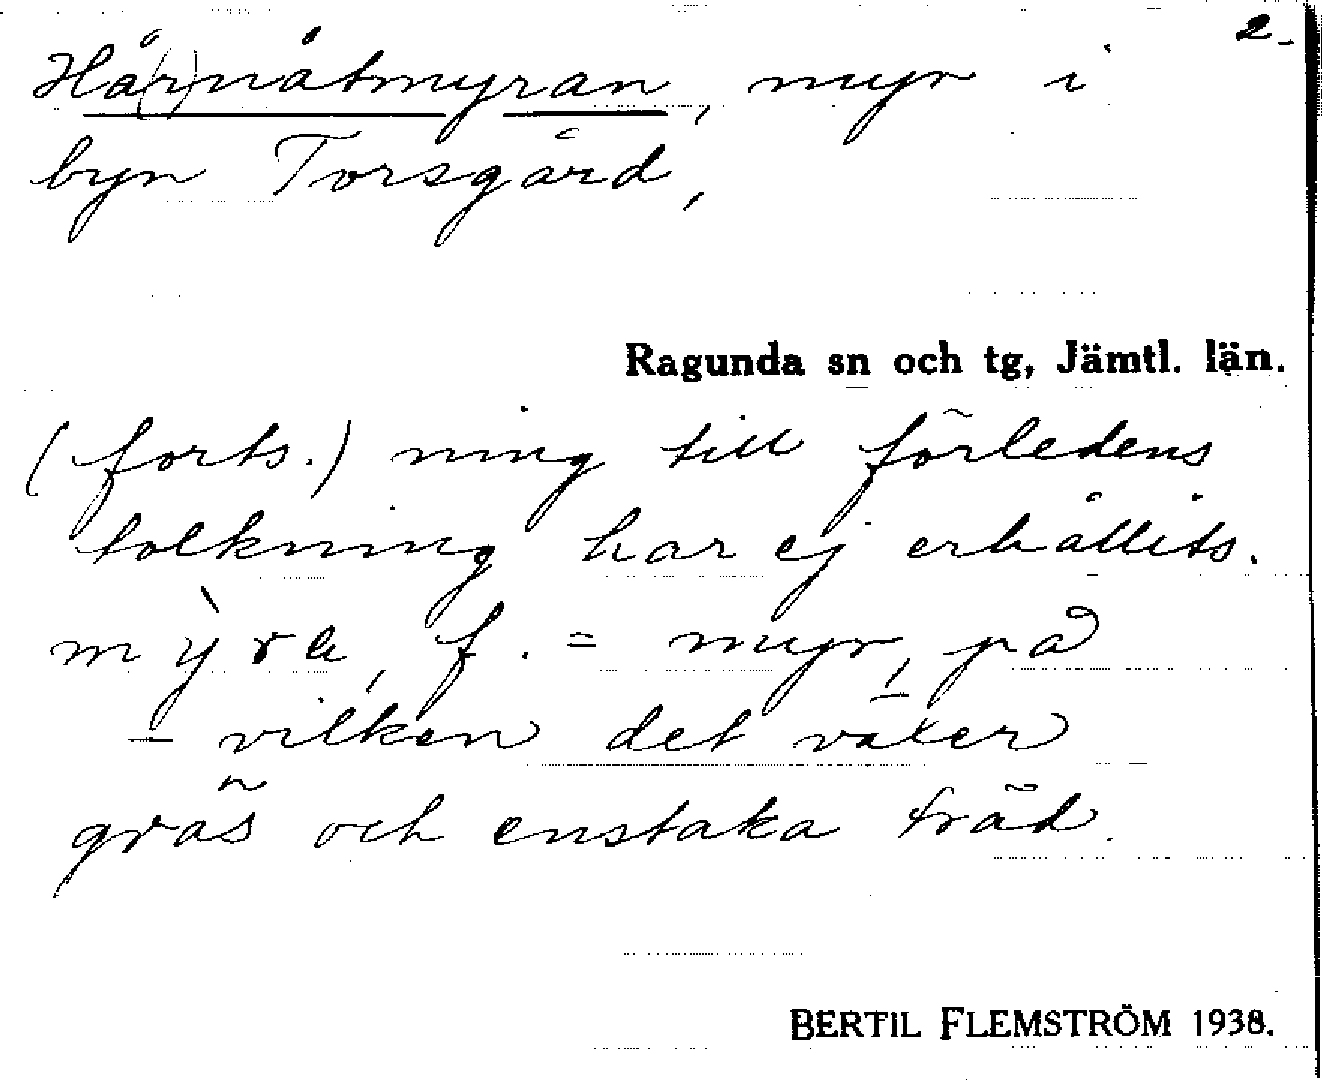 2.
Hå(r)nåtmyran, myr i
byn Torsgård,
Ragunda sn och tg, Jämtl. län.
(forts.) ning till förledens
tolkning har ej erhållits.
mỳra, f. = myr, på
– vilken det växer
gräs och enstaka träd.
BERTIL FLEMSTRÖM 1938.